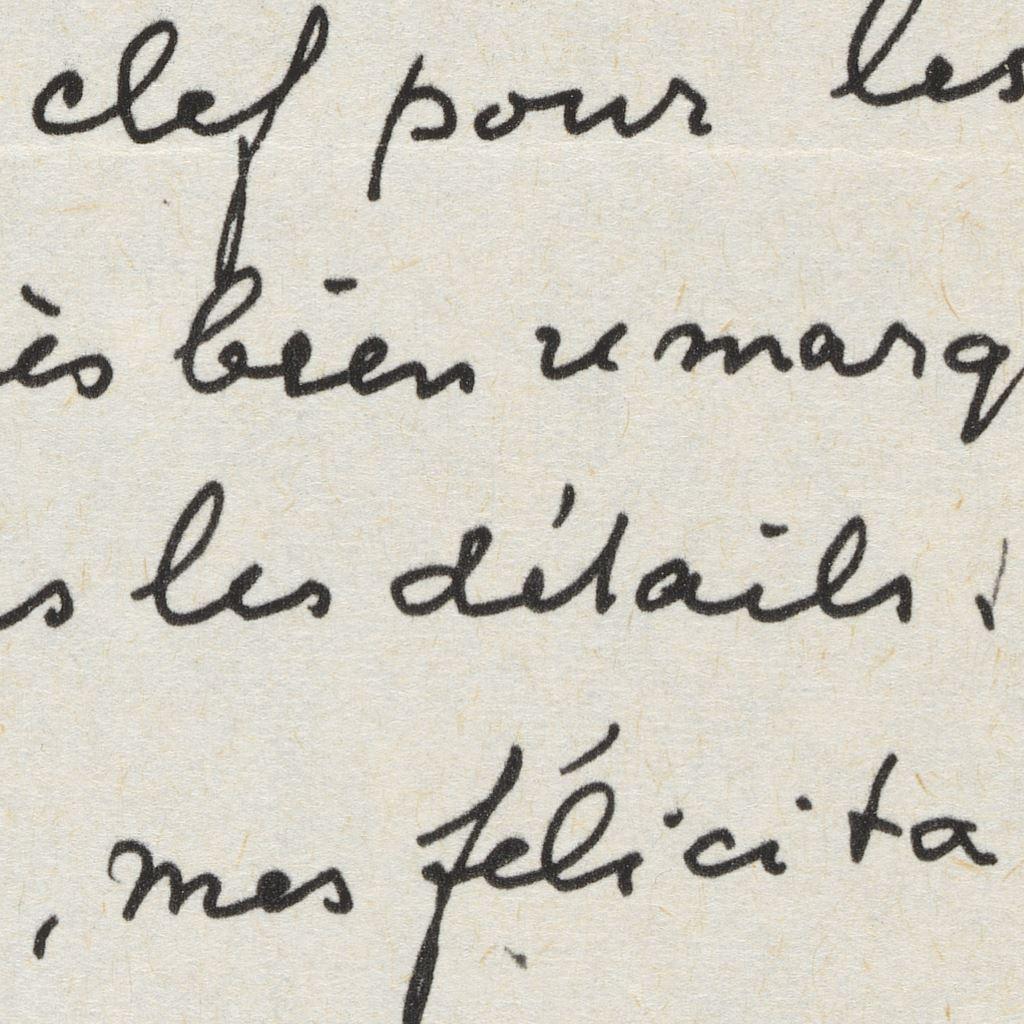 clef pour les
ès bien remarq
s les détails
, mes félicita